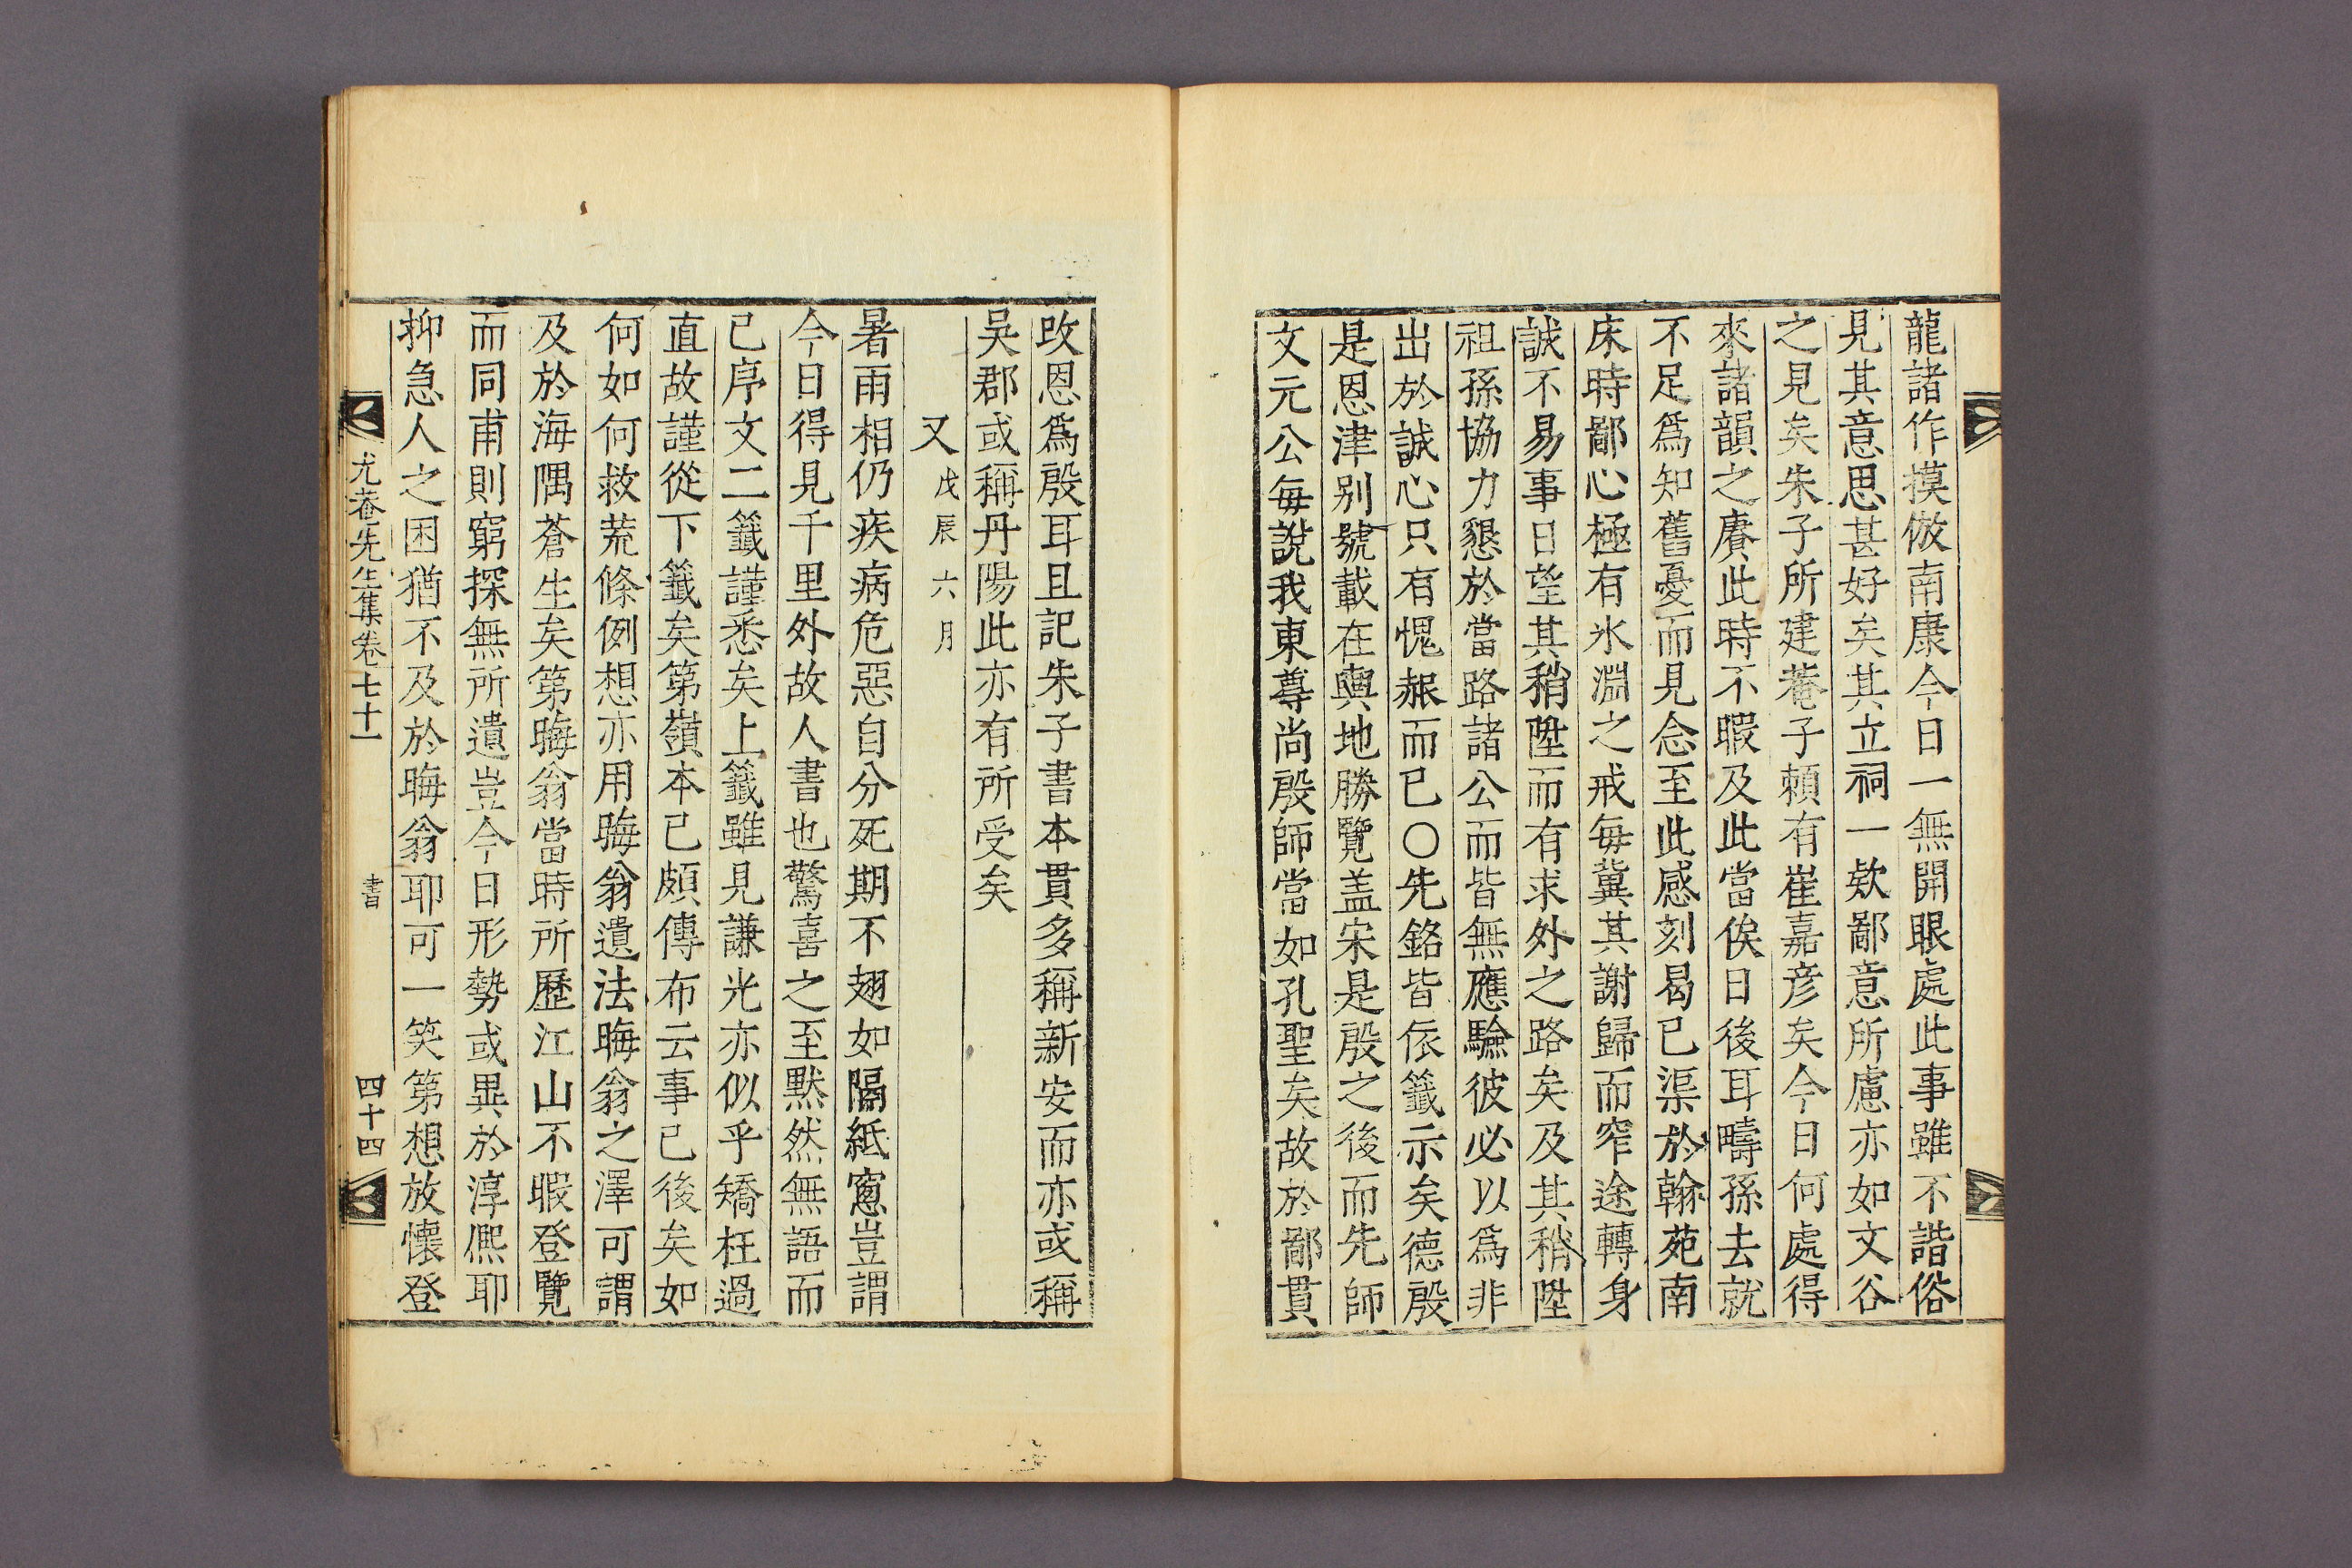 龍諸作摸倣南康今日一無開眼處此事雖不諧俗
見其意思甚好矣其立祠一欵鄙意所慮亦如文谷
之見矣朱子所建菴子賴有崔嘉彦矣今日何處得
來諸韻之賡此時不暇及此當俟日後耳疇孫去就
不足爲知舊憂而見念至此感刻曷已渠於翰苑南
床時鄙心極有氷淵之戒每冀其謝歸而窄途轉身
誠不易事日望其稍陞而有求外之路矣及其稍陞
祖孫協力懇於當路諸公而皆無應驗彼必以爲非
出於誠心只有愧赧而已○先銘皆依籤示矣德殷
是恩津别號載在輿地勝覽盖宋是殷之後而先師
文元公每說我東尊尚殷師當如孔聖矣故於鄙貫
改恩爲殷耳且記朱子書本貫多稱新安而亦或稱
吳郡或稱丹陽此亦有所受矣
又 戊辰六月
暑雨相仍疾病危惡自分死期不翅如隔紙窻豈謂
今日得見千里外故人書也驚喜之至黙然無語而
已序文二籤謹悉矣上籤雖見謙光亦似乎矯枉過
直故謹從下籤矣第嶺本已頗傳布云事已後矣如
何如何救荒條例想亦用晦翁遺法晦翁之澤可謂
及於海隅蒼生矣第晦翁當時所歷江山不暇登覽
而同甫則窮探無所遺豈今日形勢或異於淳熈耶
抑急人之困猶不及於晦翁耶可一笑第想放懷登
尤菴先生集卷七十一 書 四十四